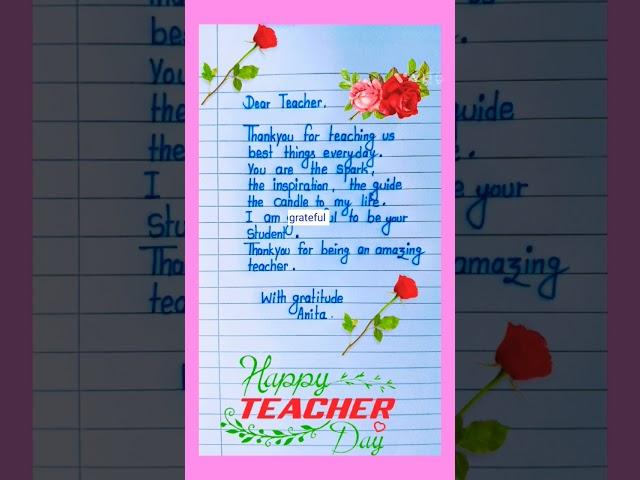 Dear Teacher.
Thankyou for teaching us
best things everyday.
You are the spark,
the inspiration, the guide
the candle to my life.
I am grateful to be your
Student.
Thankyou for being an amazing
teacher.
With gratitude
Anita.
Happy
TEACHER
Day